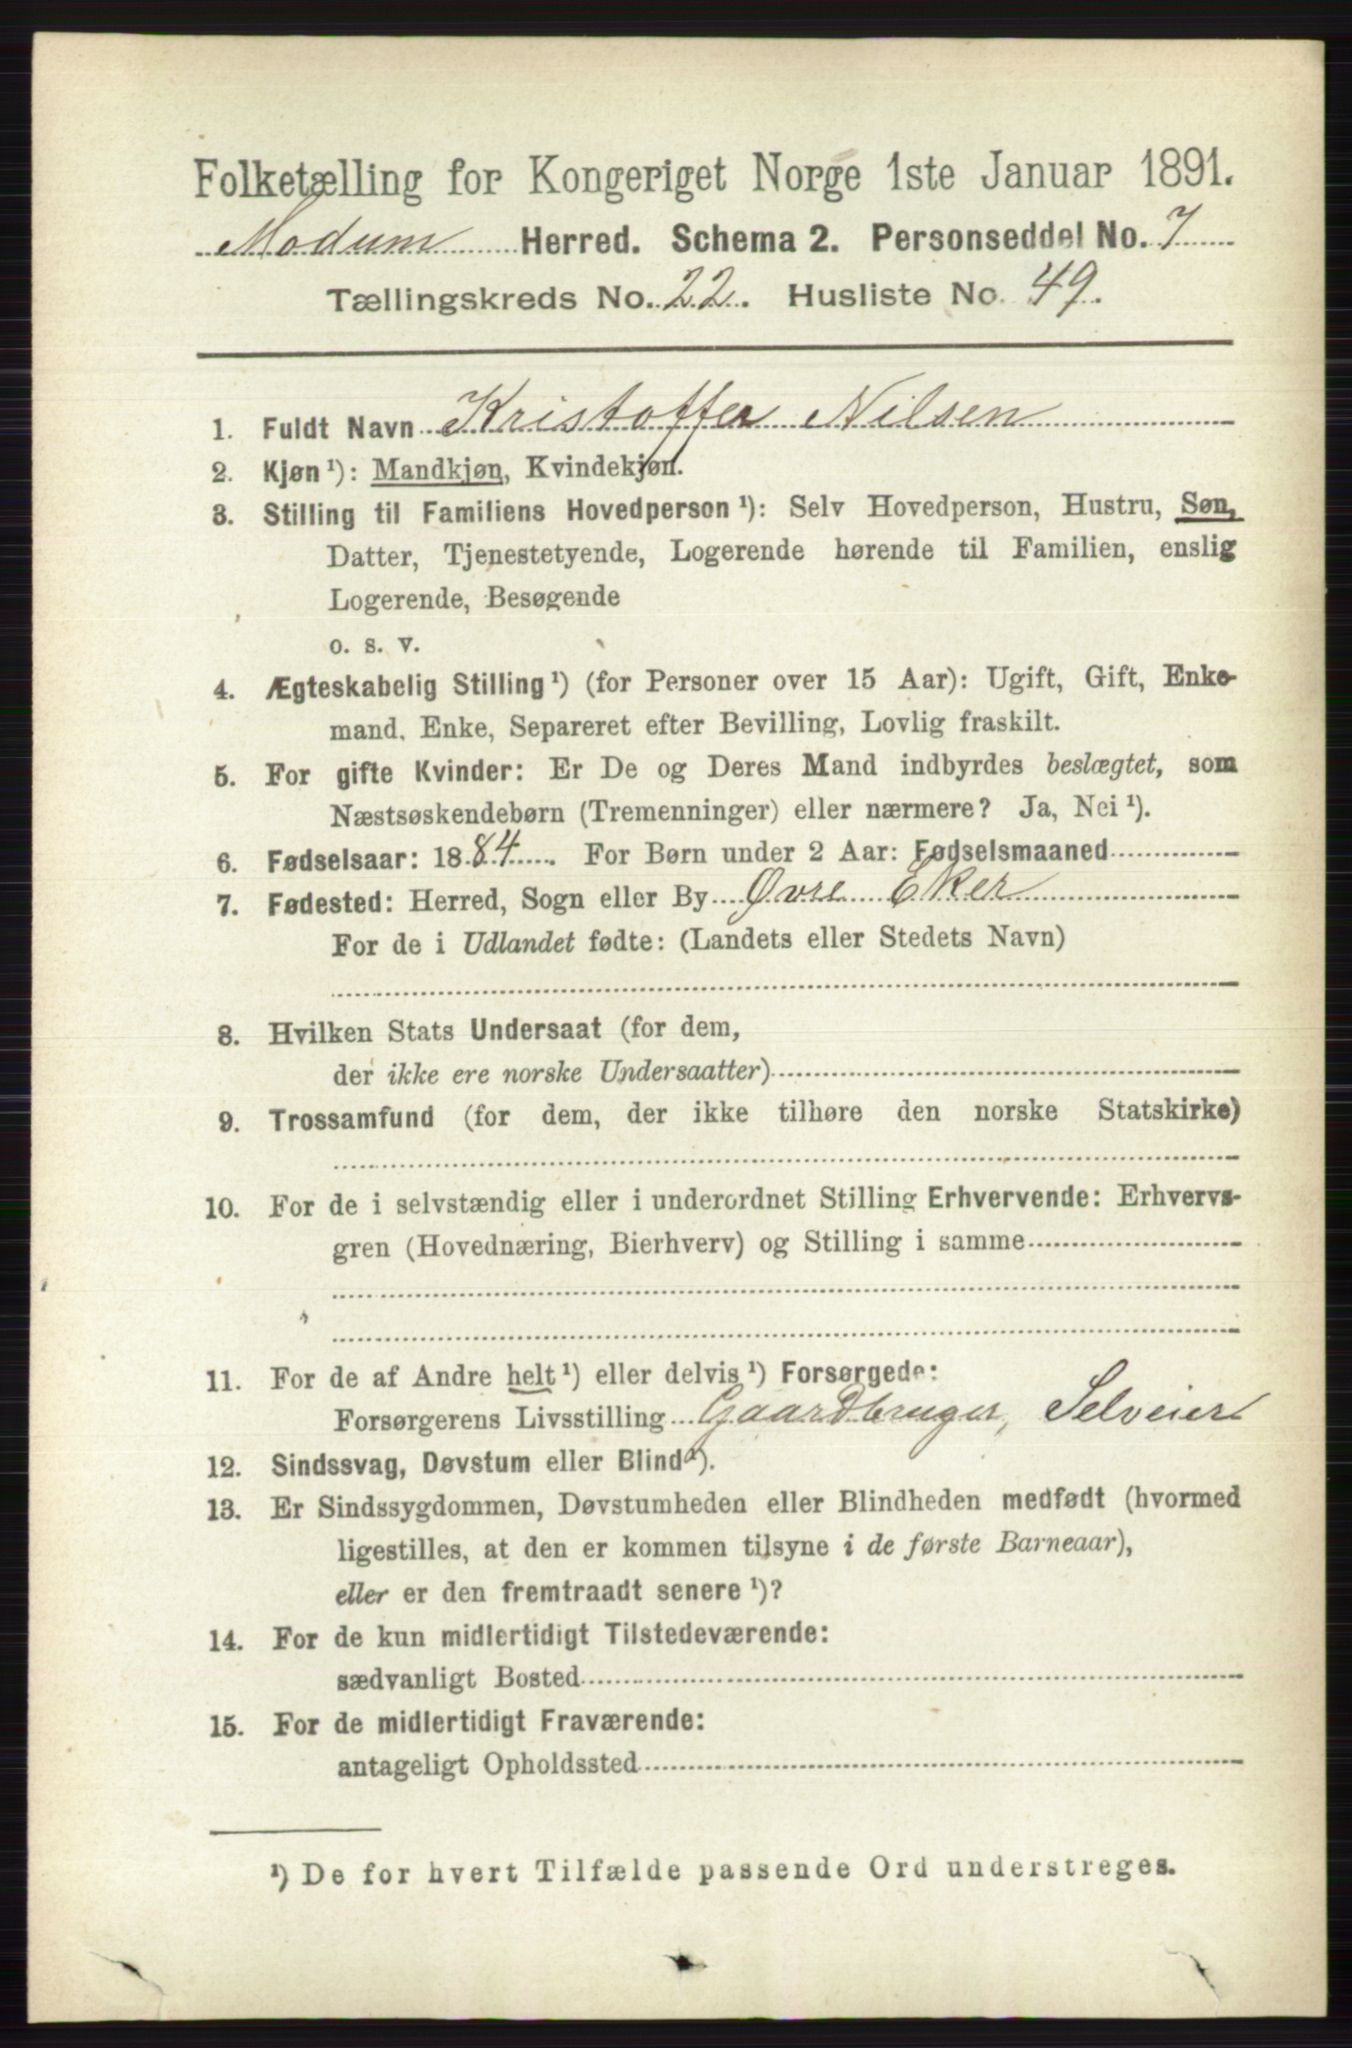 Folketælling for Kongeriget Norge 1ste Januar 1891.
Modum Herred. Schema 2. Personseddel No. 7
Tællingskreds No. 22. Husliste No. 49.
1. Fuldt Navn Kristoffer Nilsen
2. Kjøn ¹): Mandkjøn, Kvindekjøn.
3. Stilling til Familiens Hovedperson ¹): Selv Hovedperson, Hustru, Søn,
Datter, Tjenestetyende, Logerende hørende til Familien, enslig
Logerende, Besøgende
o. s. v.
4. Ægteskabelig Stilling ¹) (for Personer over 15 Aar): Ugift, Gift, Enke-
mand, Enke, Separeret efter Bevilling, Lovlig fraskilt.
5. For gifte Kvinder: Er De og Deres Mand indbyrdes beslægtet, som
Næstsøskendebørn (Tremenninger) eller nærmere? Ja, Nei ¹).
6. Fødselsaar: 1884. For Børn under 2 Aar: Fødselsmaaned
7. Fødested: Herred, Sogn eller By Øvre Eker
For de i Udlandet fødte: (Landets eller Stedets Navn)
8. Hvilken Stats Undersaat (for dem,
der ikke ere norske Undersaatter)
9. Trossamfund (for dem, der ikke tilhøre den norske Statskirke)
10. For de i selvstændig eller i underordnet Stilling Erhvervende: Erhvervs-
gren (Hovednæring, Bierhverv) og Stilling i samme
11. For de af Andre helt ¹) eller delvis ¹) Forsørgede:
Forsørgerens Livsstilling Gaardbruger, Selveier
12. Sindssvag, Døvstum eller Blind ¹).
13. Er Sindssygdommen, Døvstumheden eller Blindheden medfødt (hvormed
ligestilles, at den er kommen tilsyne i de første Barneaar),
eller er den fremtraadt senere ¹)?
14. For de kun midlertidigt Tilstedeværende:
sædvanligt Bosted
15. For de midlertidigt Fraværende:
antageligt Opholdssted
¹) De for hvert Tilfælde passende Ord understreges.